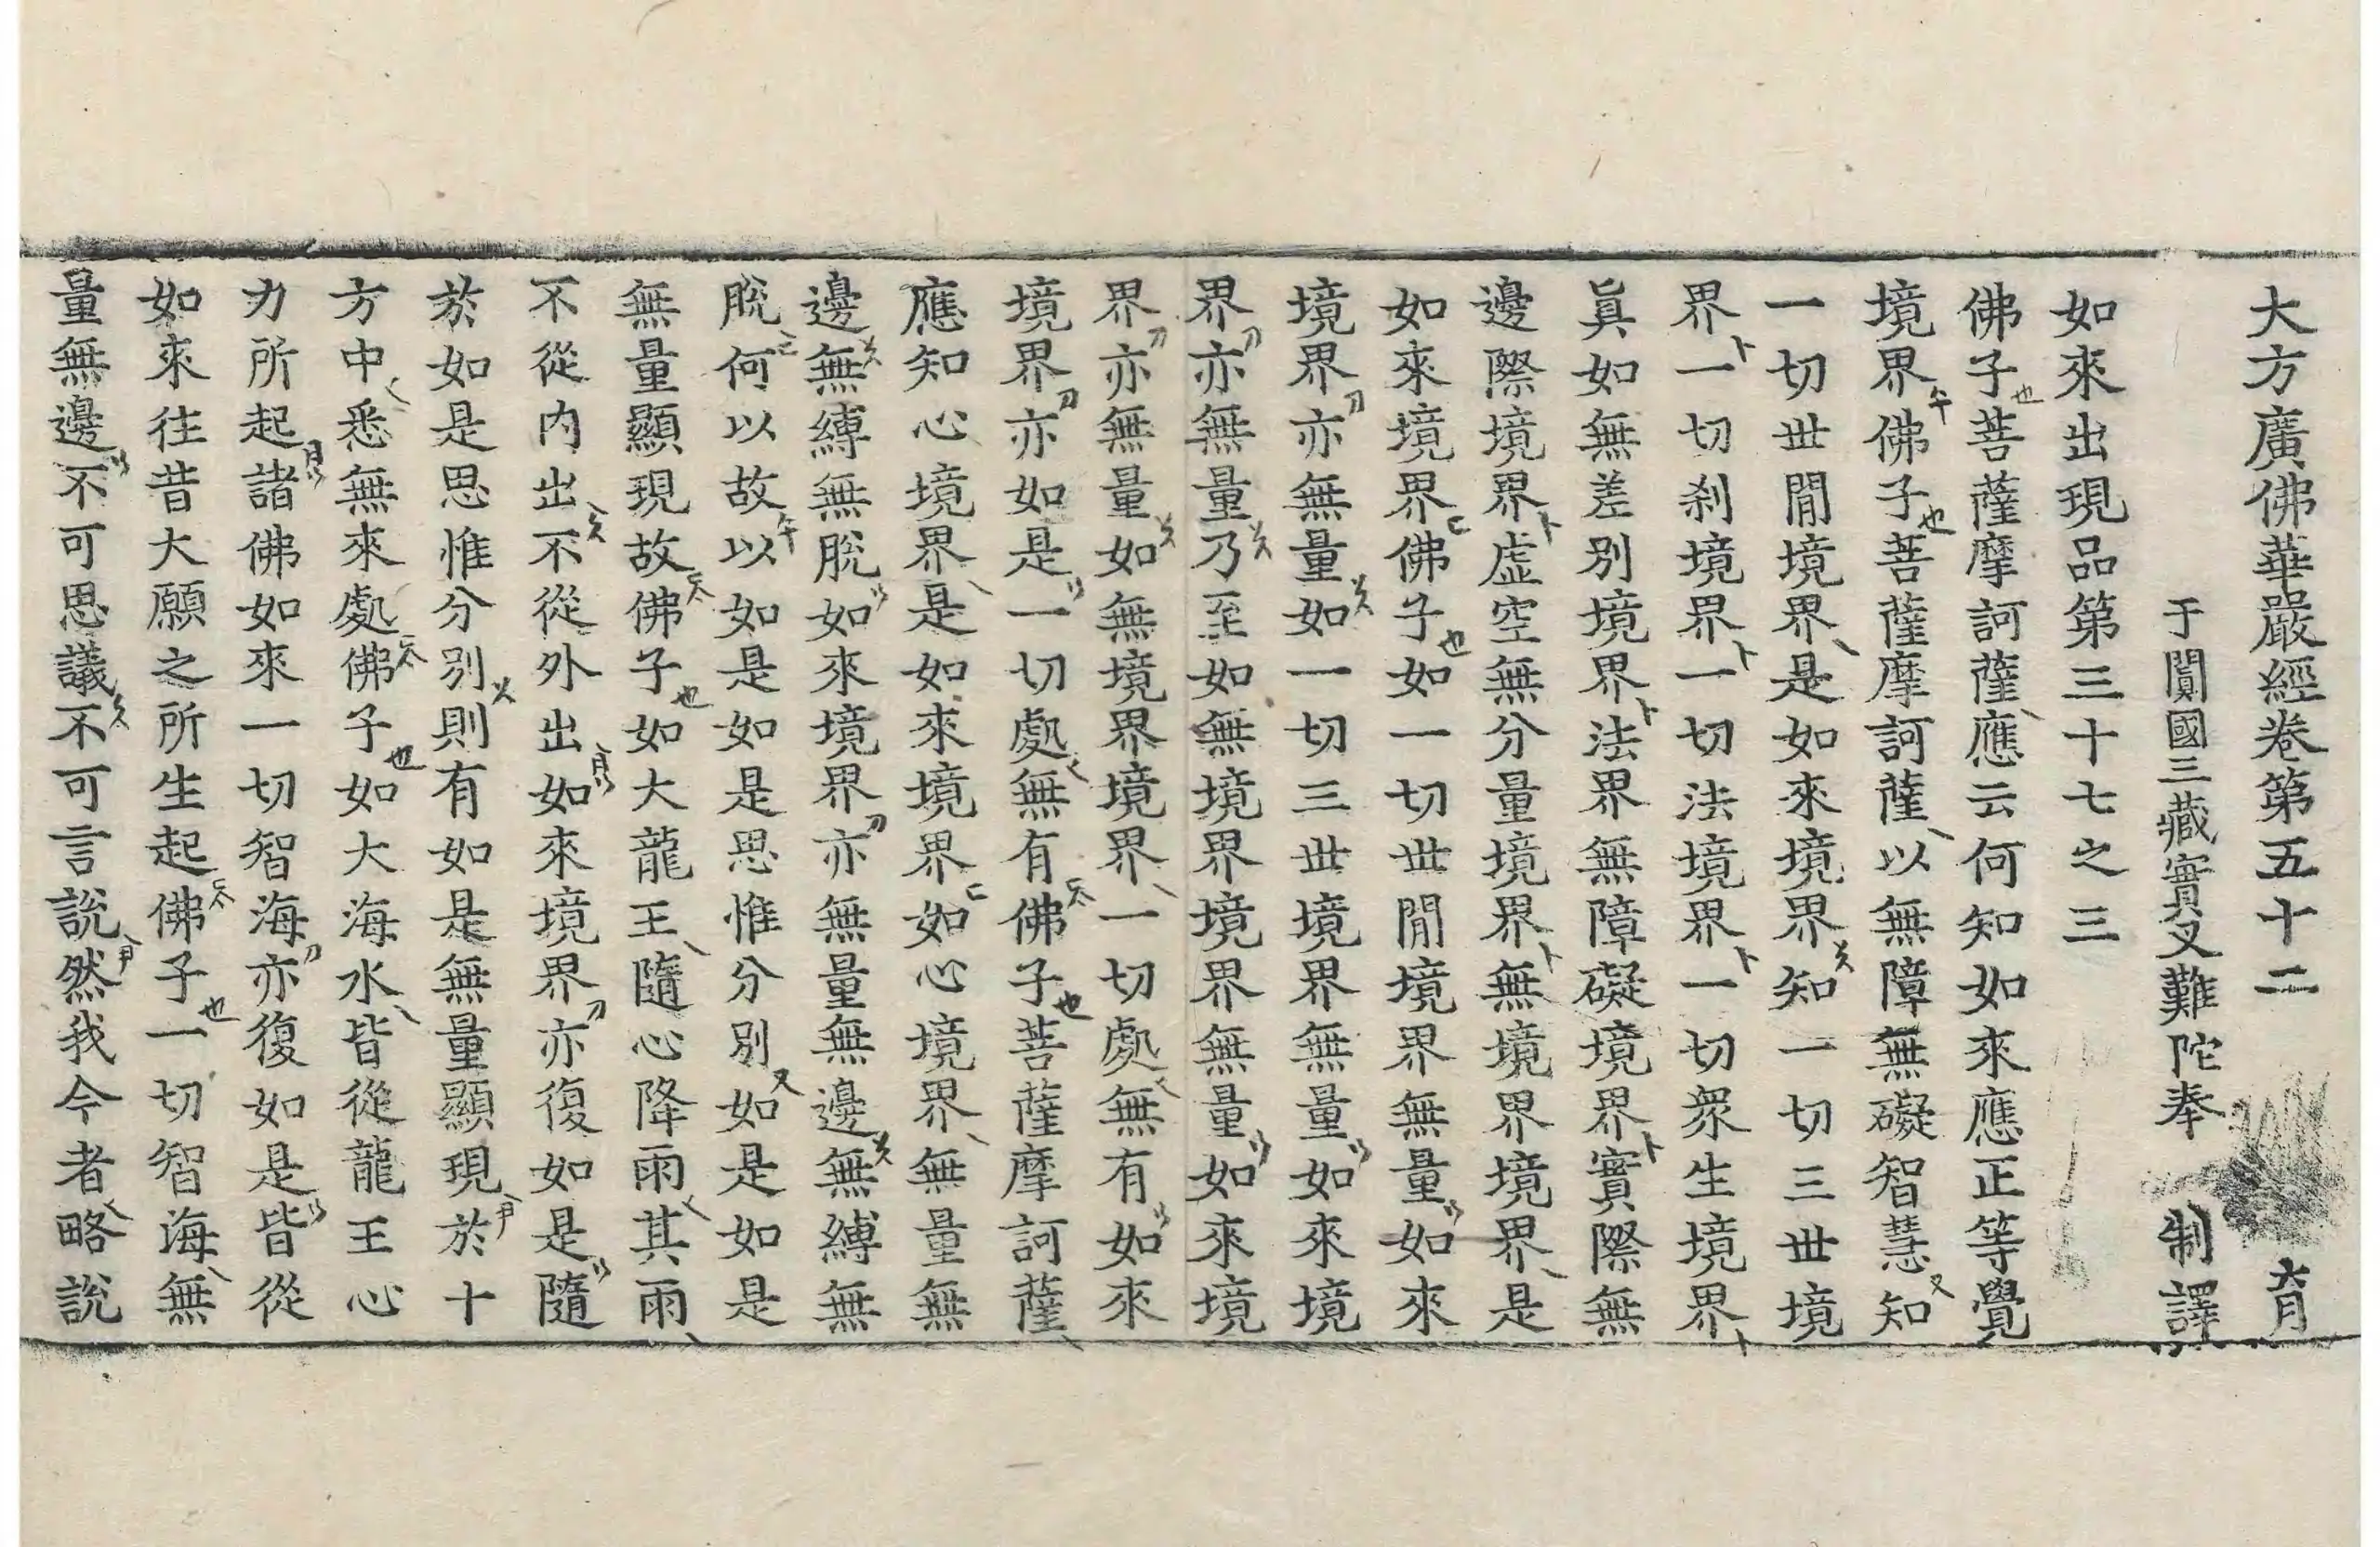 大方廣佛華嚴經卷第五十二 育
于闐國三藏實叉難陀奉 制譯
如來出現品第三十七之三
佛子菩薩摩訶薩應云何知如來應正等覺
境界佛子菩薩摩訶薩以無障無礙智慧知
一切世間境界是如來境界知一切三世境
界一切剎境界一切法境界一切衆生境界
眞如無差別境界法界無障礙境界實際無
邊際境界虛空無分量境界無境界境界是
如來境界佛子如一切世間境界無量如來
境界亦無量如一切三世境界無量如來境
界亦無量乃至如無境界境界無量如來境
界亦無量如無境界境界一切處無有如來
境界亦如是一切處無有佛子菩薩摩訶薩
應知心境界是如來境界如心境界無量無
邊無縛無脫如來境界亦無量無邊無縛無
脫何以故以如是如是思惟分別如是如是
無量顯現故佛子如大龍王隨心降雨其雨
不從內出不從外出如來境界亦復如是隨
於如是思惟分別則有如是無量顯現於十
方中悉無來處佛子如大海水皆從龍王心
力所起諸佛如來一切智海亦復如是皆從
如來往昔大願之所生起佛子一切智海無
量無邊不可思議不可言說然我今者略說